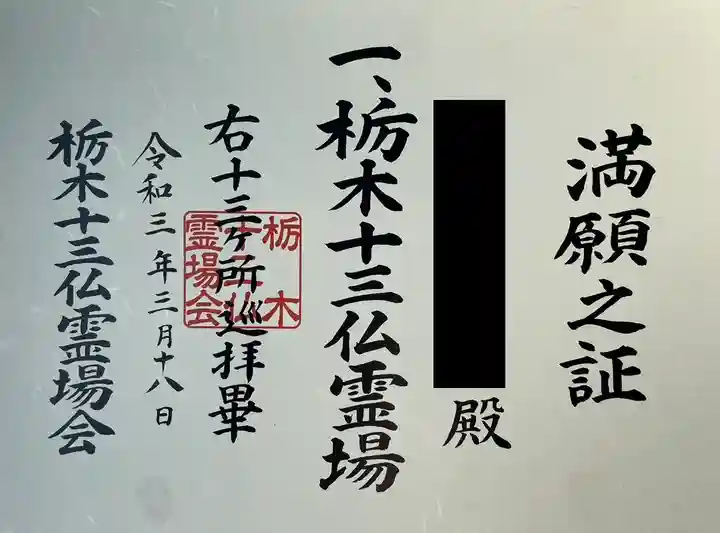 満願之証
殿
一、栃木十三仏霊場
右十三ヶ所巡拝畢
令和三年三月十八日
栃木十三仏霊場会
栃木
十三仏
霊場会